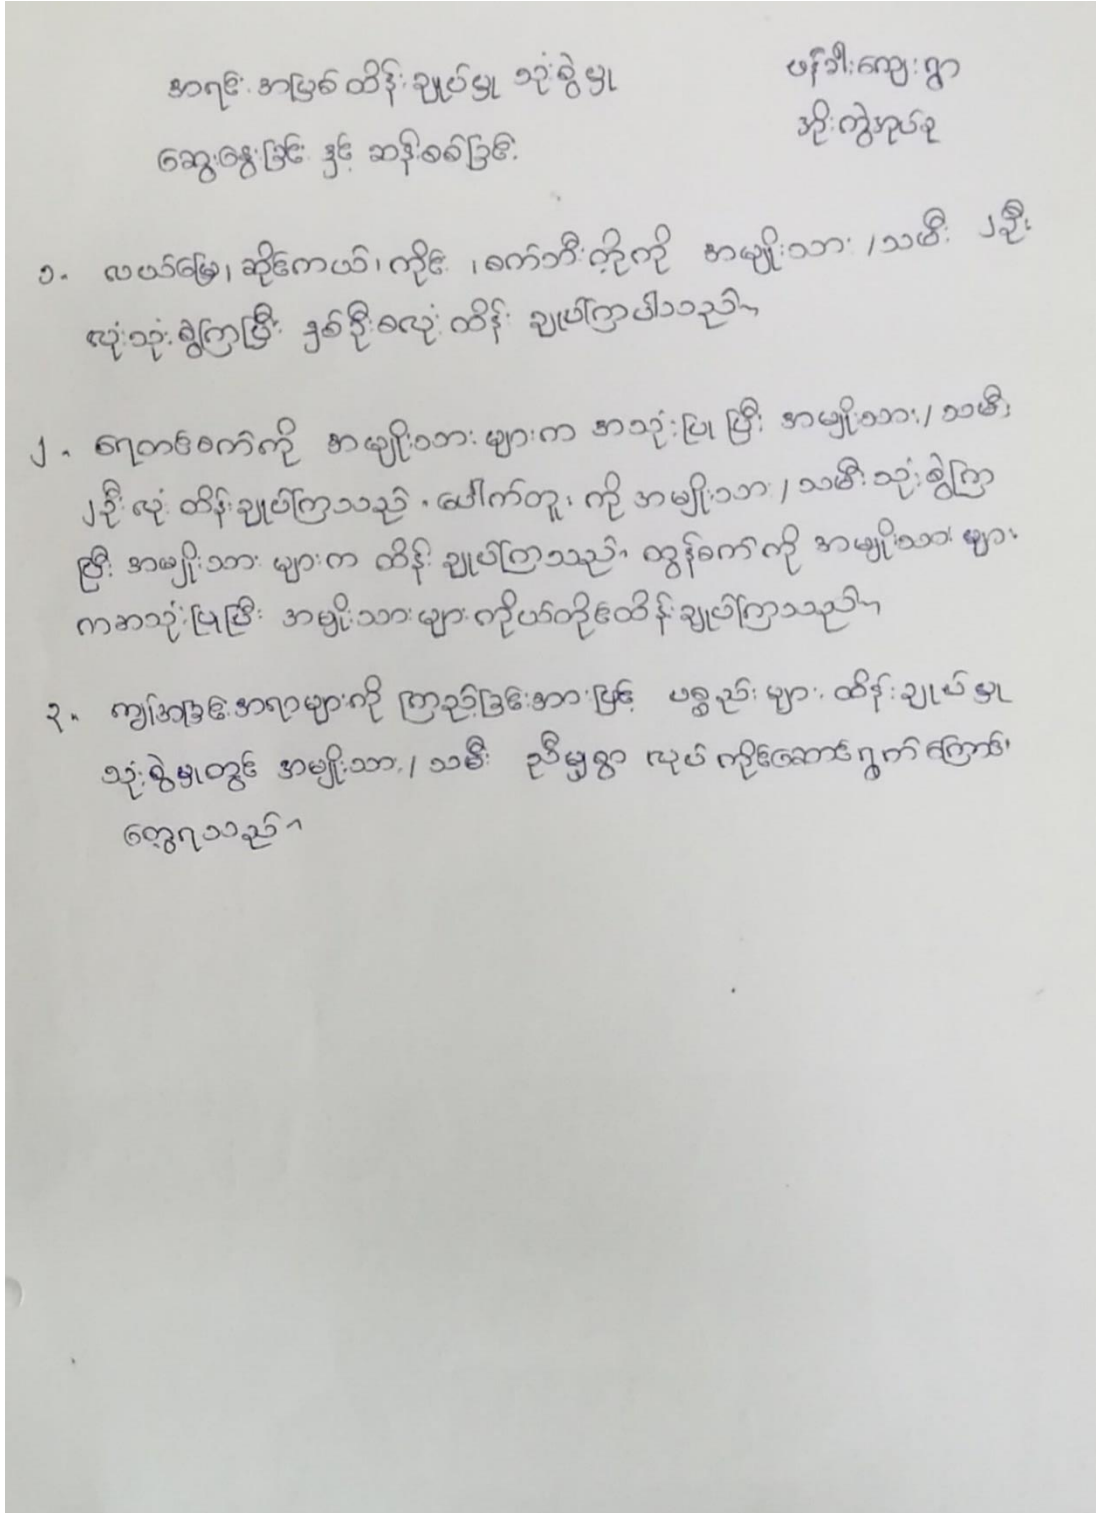 အရင်းအမြစ်ထိန်းချုပ်မှု သုံးစွဲမှု
ဖန်ခါးကျေးရွာ
ဆွေးနွေးခြင်း နှင့် ဆန်းစစ်ခြင်း
အိုးကွဲအုပ်စု
၁. လယ်မြေ၊ ဆိုင်ကယ်၊ ကိုင်း ၊ စက်ဘီးတို့ကို အမျိုးသား / သမီး ၂ဦး
လုံးသုံးစွဲကြပြီး နှစ်ဦးစလုံး ထိန်းချုပ်ကြပါသည်။
၂. ရေတင်စက်ကို အမျိုးသားများက အသုံးပြုပြီး အမျိုးသား / သမီး
၂ဦးလုံး ထိန်းချုပ်ကြသည်။ ပေါက်တူး ကို အမျိုးသား / သမီး သုံးစွဲကြ
ပြီး အမျိုးသားများက ထိန်းချုပ်ကြသည်။ ထွန်စက်ကို အမျိုးသားများ
ကအသုံးပြုပြီး အမျိုးသားများကိုယ်တိုင်ထိန်းချုပ်ကြသည်။
၃. ကျွမ်အခြင်းအရာများကို ကြည့်ခြင်းအားဖြင့် ပစ္စည်းများ ထိန်းချုပ်မှု
သုံးစွဲမှုတွင် အမျိုးသား / သမီး ညီမျှစွာ လုပ်ကိုင်ဆောင်ရွက်ကြောင်း
တွေ့ရသည်။